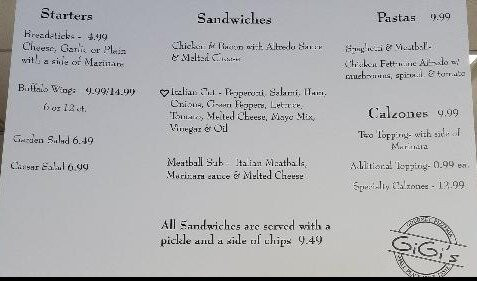 Starters
Breadsticks - 4.99
Cheese, Garlic or Plain
with a side of Marinara
Buffalo Wings 9.99/14.99
6 or 12 ct.
Garden Salad 6.49
Caesar Salad 6.99
Sandwiches
Chicken & Bacon with Alfredo Sauce
& Melted Cheese
♡Italian Cut - Pepperoni, Salami, Ham,
Onions, Green Peppers, Lettuce,
Tomato, Melted Cheese, Mayo Mix,
Vinegar & Oil
Meatball Sub - Italian Meatballs,
Marinara sauce & Melted Cheese
All Sandwiches are served with a
pickle and a side of chips 9.49
Pastas 9.99
Spaghetti & Meatballs
Chicken Fettuccine Alfredo w/
mushrooms, spinach & tomato
Calzones 9.99
Two Topping- with side of
Marinara
Additional Topping- 0.99 ea.
Specialty Calzones - 12.99
GiGi's